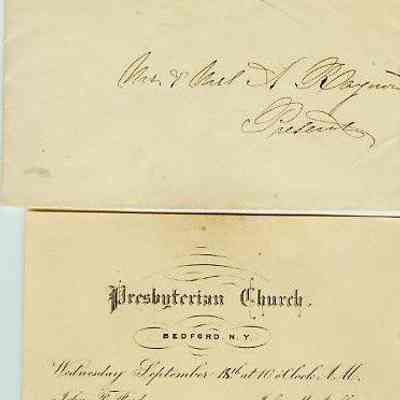 Mr. & Mrs. A Raynor
Present
Presbyterian Church.
BEDFORD. N. Y
Wednesday September 18th at 10 o'Clock A.M.
John